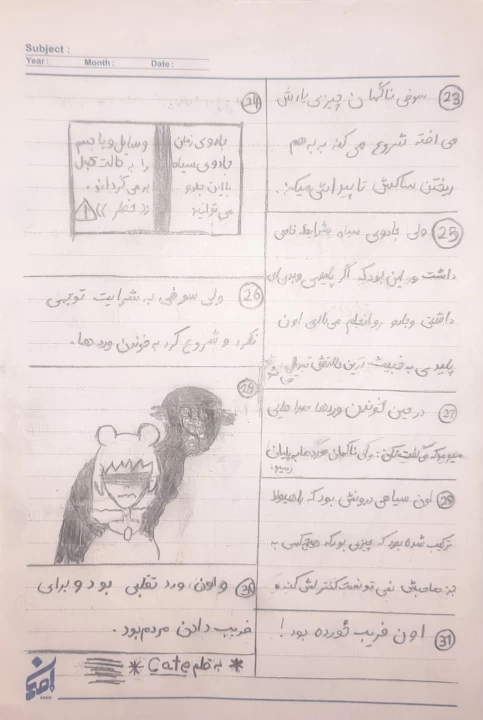 Subject :
Year : Month : Date :
23 سوفی ناگهان چیزی یادش
می افته شروع می کنه به بهم
ریختن ساکش تا پیداش میکنه.
24
جادوی زمان
جادوی سیاه
با این جادو
می توانید
وسایل و یا جسم
را به حالت قبل
بر می گردانید.
(( خطر )) !
25 ولی جادوی سیاه شرایط خاص
داشت و این بود که اگر پلیدی
داشتی و جادو رو انجام می دادی اون
پلیدی به خبیث ترین حالتش تبدیل می شد
26 ولی سوفی به شرایت توجهی
نکرد و شروع کرد به خوندن وردها.
27 در حین خوندن وردها صداهایی
ولی ناگهان وردها به پایان
رسید.
28
29 اون سیاهی درونش بود که با هیولا
ترکیب شده بود که چیزی بود که هیچ کس به
جز صاحبش نمی تونست کنترلش کنه.
30 و اون، ورد تقلبی بود و برای
فریب دادن مردم بود.
31 اون فریب خورده بود!
* به قلم Gate *